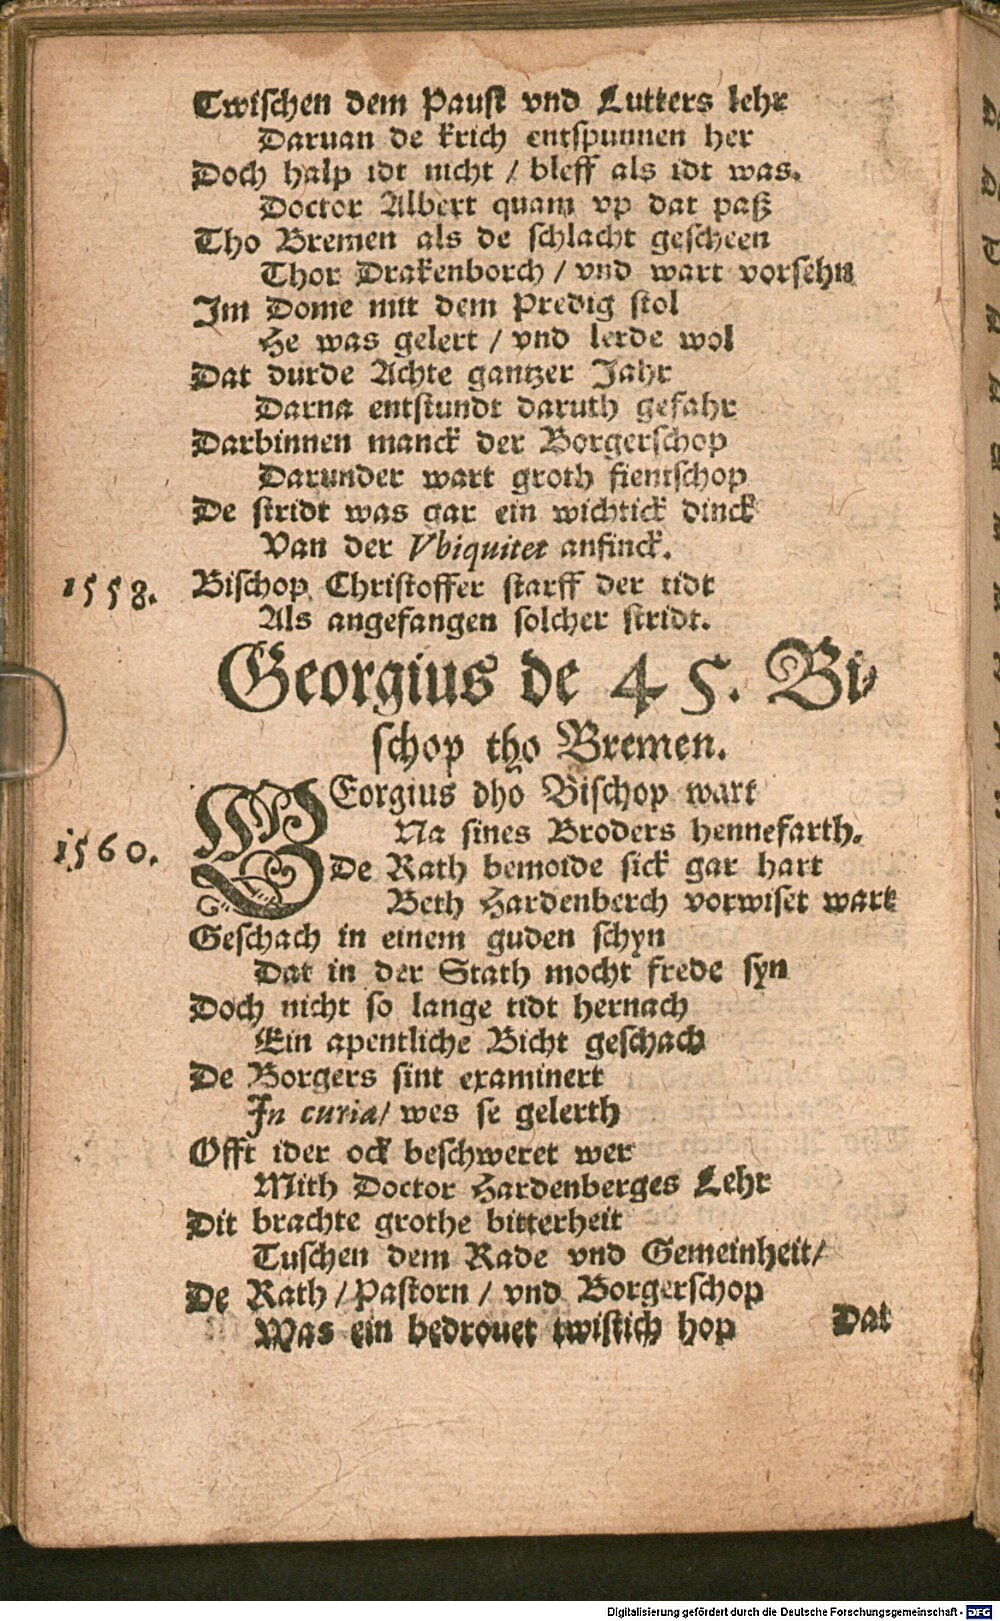 Twischen dem Paust vnd Lutters lehr
Daruan de krich entspunnen her
Doch halp idt nicht / bleff als idt was.
Doctor Albert quam vp dat paß
Tho Bremen als de schlacht gescheen
Thor Drakenborch / vnd wart vorsehn
Im Dome mit dem Predig stol
He was gelert / vnd lerde wol
Dat durde Achte gantzer Jahr
Darna entstundt daruth gefahr
Darbinnen manck der Borgerschop
Darunder wart groth fientschop
De stridt was gar ein wichtick dinck
Van der Vbiquitet anfinck.
1558. Bischop Christoffer starff der tidt
Als angefangen solcher stridt.
Georgius de 45. Bi-
schop tho Bremen.
GEorgius dho Bischop wart
1560. Na sines Broders hennefarth.
De Rath bemoide sick gar hart
Beth Hardenberch vorwiset wart
Geschach in einem guden schyn
Dat in der Stath mocht frede syn
Doch nicht so lange tidt hernach
Ein apentliche Bicht geschach
De Borgers sint examinert
In curia / wes se gelerth
Offt ider ock beschweret wer
Mith Doctor Hardenberges Lehr
Dit brachte grothe bitterheit
Tuschen dem Rade vnd Gemeinheit /
De Rath / Pastorn / vnd Borgerschop
Was ein bedrouet twistich hop
Dat
Digitalisierung gefördert durch die Deutsche Forschungsgemeinschaft - DFG